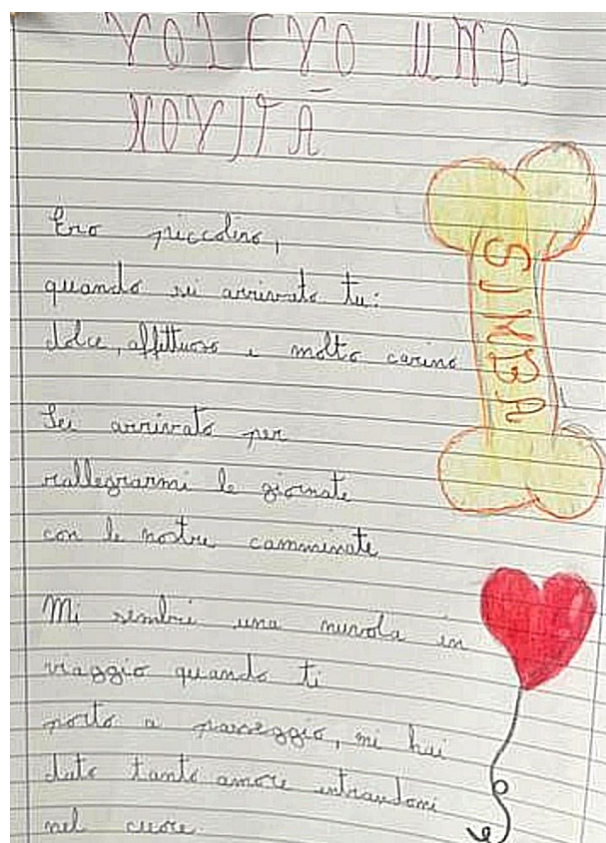 VOLEVO UNA
NOVITÀ
Ero piccolino,
quando sei arrivato tu:
dolce, affettuoso e molto carino
SIMBA
Sei arrivato per
rallegrarmi le giornate
con le nostre camminate
Mi sembri una nuvola in
viaggio quando ti
porto a passeggio, mi hai
dato tanto amore entrandomi
nel cuore.